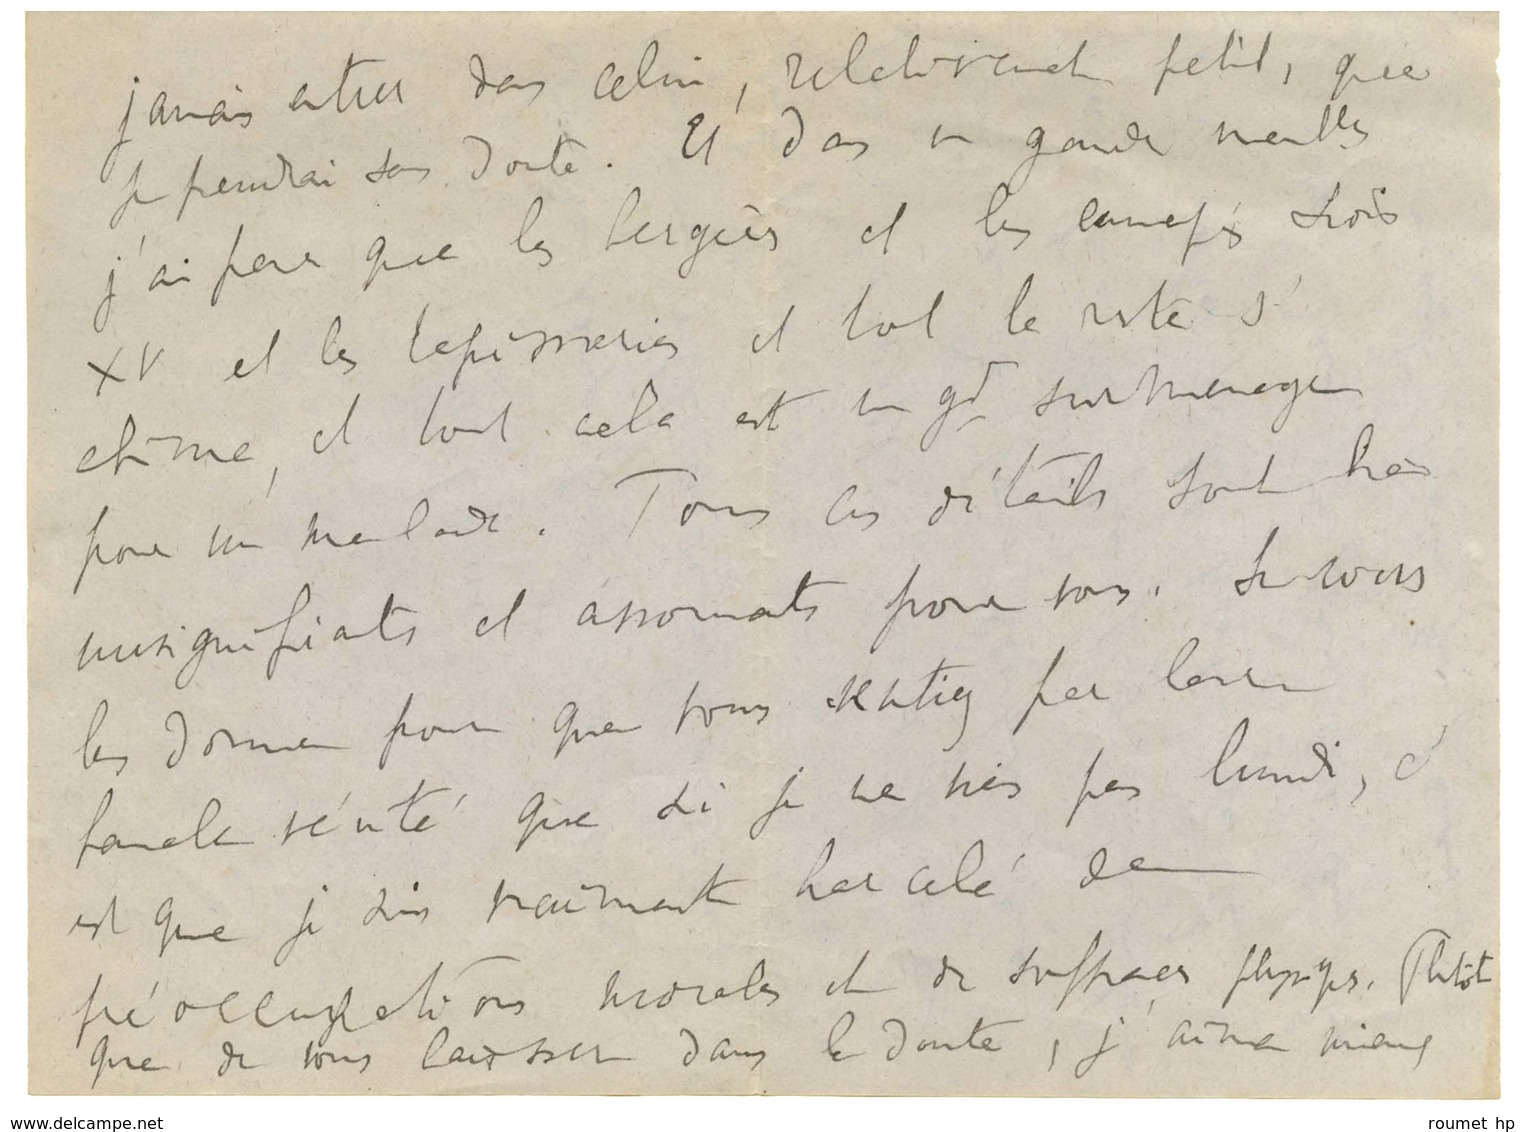 jamais entrer dans celui, relativement petit, que
je prendrai sans doute. Et dans un garde meubles
j'ai peur que les bergères et les canapés Louis
XV et les tapisseries et tout le reste s'
abîme, et tout cela est un gd surmenage
pour un malade. Tous ces détails sont très
insignifiants et assommants pour vous. Je vous
les donne pour que vous sentiez par leur
banale vérité que si je ne vais pas lundi, c'
est que je suis vraiment harcelé de
préoccupations morales et de souffrances physiqs. Plutôt
que de vous laisser dans le doute, j'aime mieux
www.delcampe.net
roumet hp